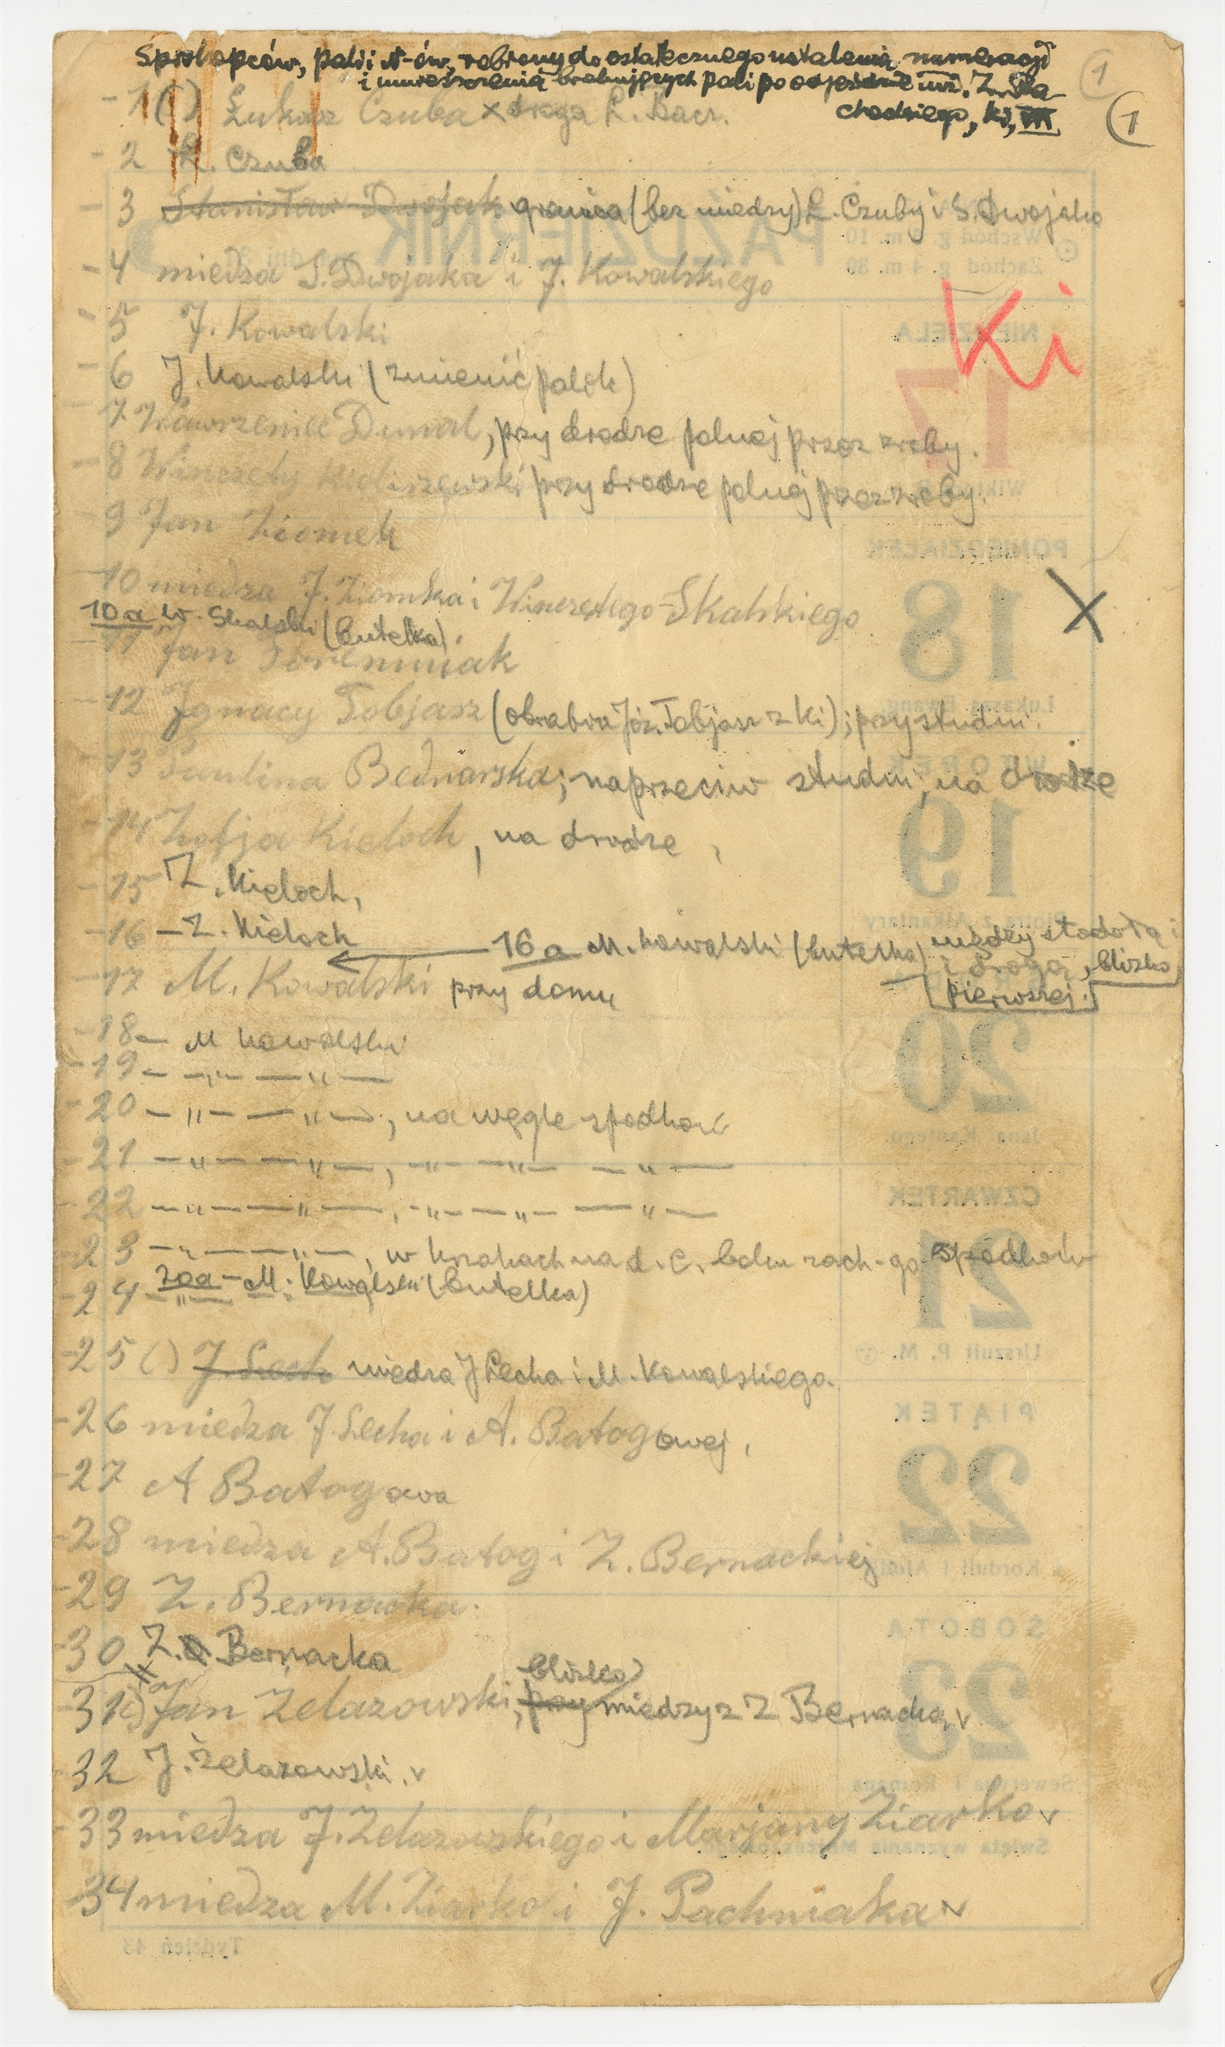 Spis chłopców, pali i №-ów, robiony do ostatecznego ustalenia numeracji
i umieszczenia brakujących pali po odjeździe inż. Z.
chodziego, Ki, VII
1
1
- 1 ( ) Łukasz Czuba x droga Ł. Bacz.
- 2 Ł. Czuba
- 3 Stanisław Dwojak granica (bez miedzy) Ł. Czuby i S. Dwojaka
- 4 miedza S. Dwojaka i J. Kowalskiego
- 5 J. Kowalski
Ki
- 6 J. Kowalski (zmienić palik)
- 7 Wawrzeniec Dumal, przy drodze polnej przez zręby.
- 8 Wincenty Kieliszewski przy drodze polnej przez zręby.
9 Jan Ziomek
- 10 miedza J. Ziomka i Wincentego Skalskiego
X
10a W. Skalski (butelka)
- 11 Jan
- 12 Ignacy Tobjasz (obrabia Józ. Tobjasz z Ki); przy studni.
- 13 Paulina Bednarska; naprzeciw studni, na drodze
- 14 Zofja Kieloch, na drodze,
- 15 Z. Kieloch,
- 16 — Z. Kieloch
16a M. Kowalski (butelka) między stodołą i
i drogą, blizko
pierwszej.
- 17 M. Kowalski przy domu
- 18 — M Kowalski
- 19 — „ — — „ —
- 20 — „ — — „ —, na węgle spodków
- 21 — „ — — „ —, — „ — — „ — — „ —
- 22 — „ — — „ —, — „ — — „ — — „ —
- 23 — „ — — „ —, w krzakach na d. c. boku zach-go spodków
20a — M. Kowalski (butelka)
- 24 — „ — —
- 25 ( ) J. Lech miedza J Lecha i M. Kowalskiego.
- 26 miedza J Lecha i A. Batogowej,
- 27 A Batogowa
- 28 miedza A. Batog i Z. Bernackiej
- 29 Z. Bernacka.
- 30 Z. Bernacka
blizko
- 31 ( ) Jan Żelazowski, przy miedzy z Z Bernacką v
- 32 J. Żelazowski. v
- 33 miedza J. Żelazowskiego i Marjany Ziarko v
- 34 miedza M. Ziarko i J. Pachniaka v
PAŹDZIERNIK
Wschód g. 6 m. 10
Zachód g. 4 m. 80
NIEDZIELA
17
PONIEDZIAŁEK
18
Łukasza Ewang.
WTOREK
19
Piotra z Alkantary
20
Jana Kantego
CZWARTEK
21
Urszuli P. M.
PIĄTEK
22
Korduli i Alodji
SOBOTA
23
Seweryna i Romana
Święta wyznania Mojżeszowego
Tydzień 43